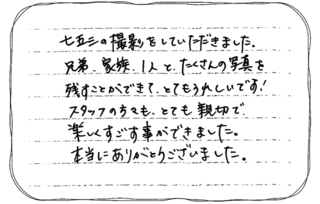 七五三の撮影をしていただきました。
兄弟、家族、1人と、たくさんの写真を
残すことができて、とてもうれしいです!
スタッフの方々も、とても親切で
楽しくすごす事ができました。
本当にありがとうございました。